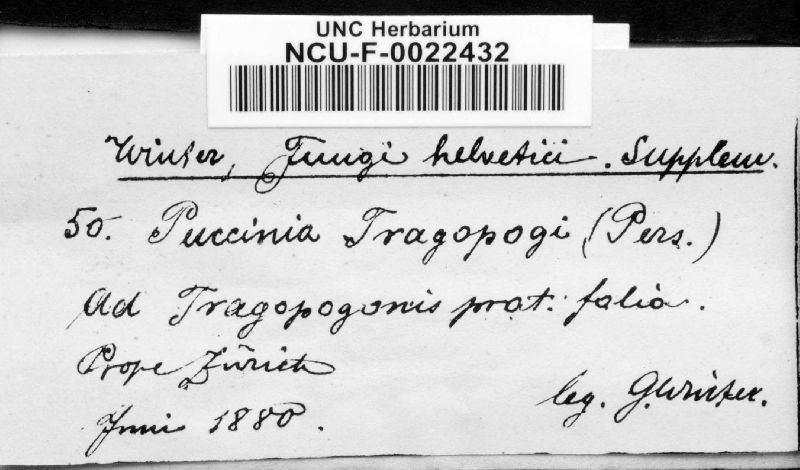 UNC Herbarium
NCU-F-0022432
Winter, Fungi helvetici. Supplem.
50. Puccinia Tragopogi (Pers.)
Ad Tragopogonis prat. folia.
Prope Zürich
Juni 1880.
leg. G. Winter.